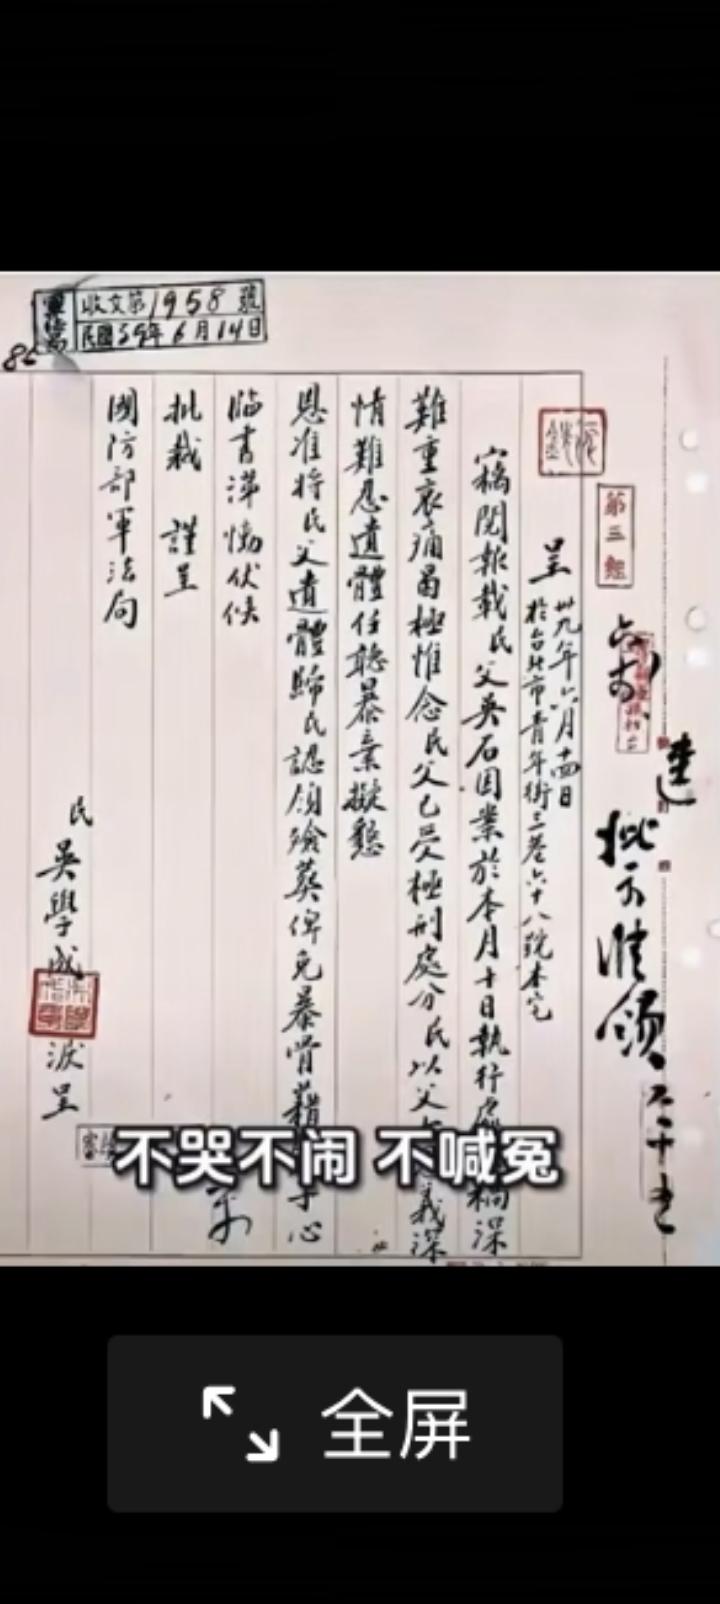 收文第1958號
民國39年6月14日
第三組
呈
卅九年六月十四日
於台北市青年街三巷六十八號本宅
竊閱報載民父吳石因案於本月十日執行處
禍深
難重哀痛曷極惟念民父已受極刑處分民以父
義深
情難忍遺體任聽暴棄擬懇
恩准將民父遺體歸民認領殮葬俾免暴骨藉
子心
臨書涕慟伏候
批裁 謹呈
國防部軍法局
民 吳學成 淚呈
批示准領
不哭不闹 不喊冤
全屏